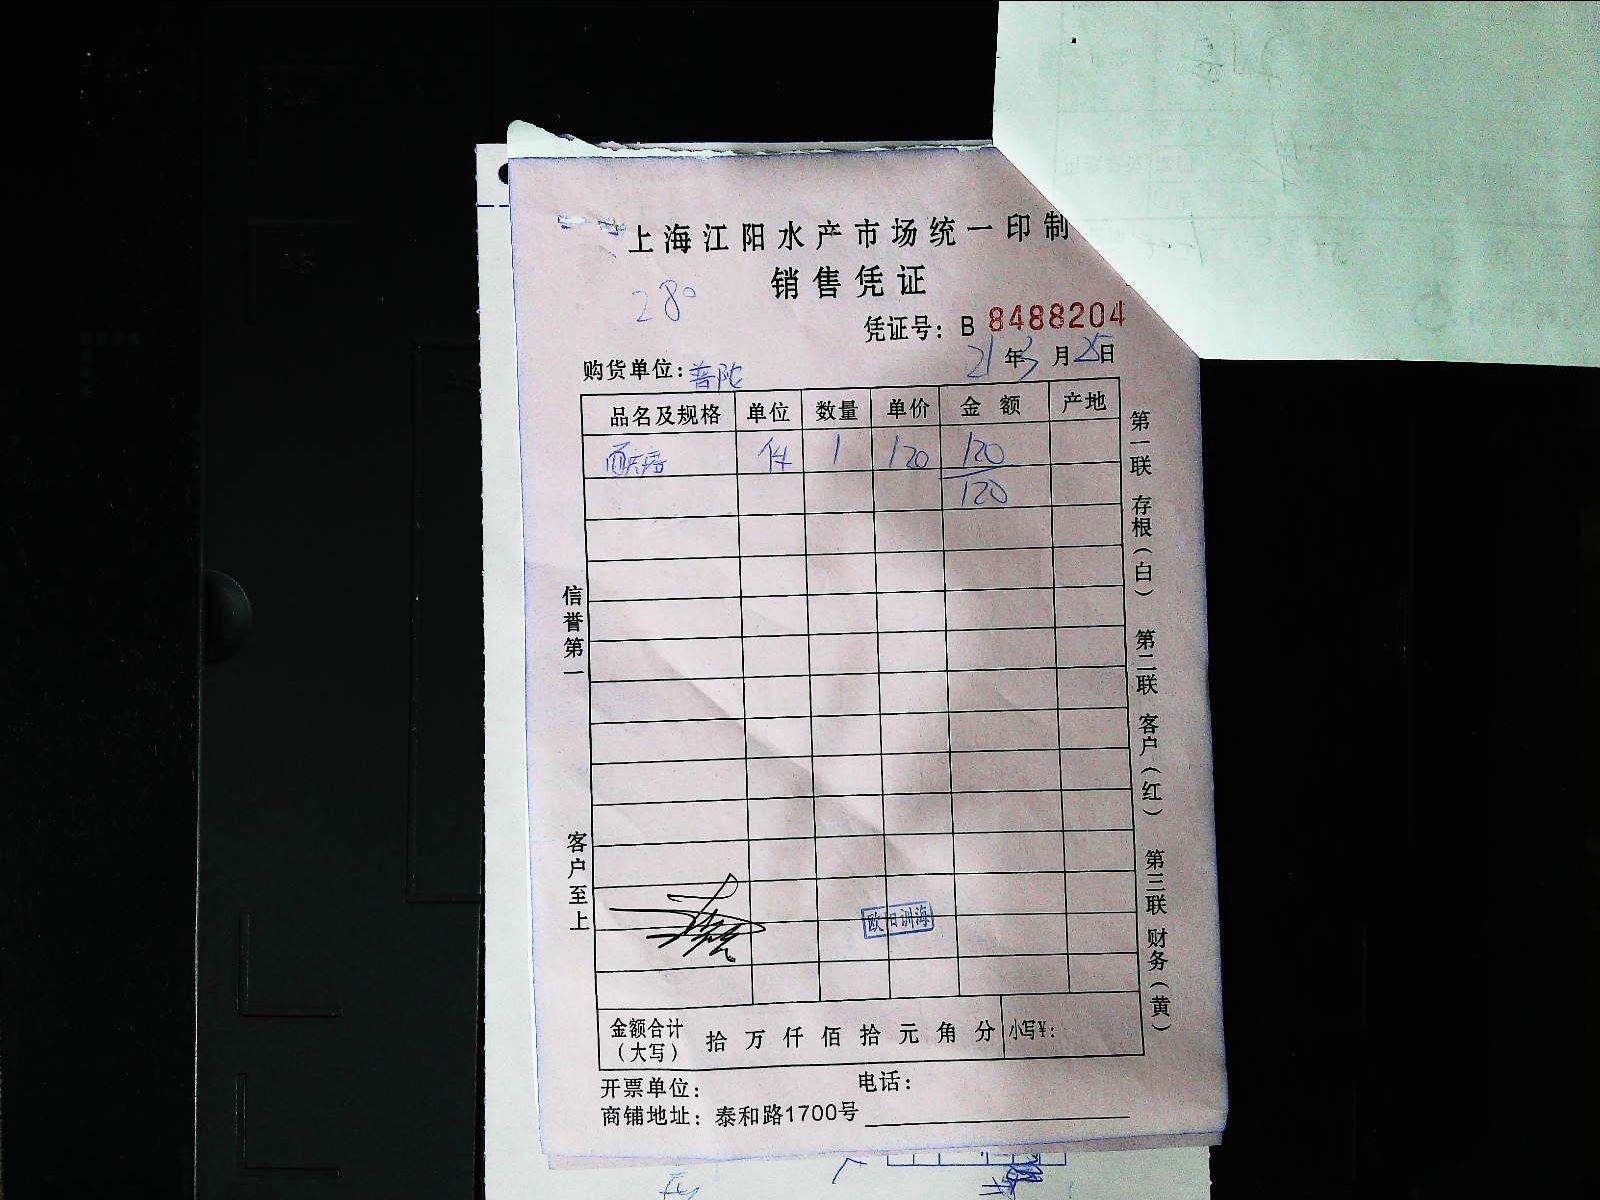 上海江阳水产市场统一印制
销售凭证
280
凭证号：B 8488204
21年3月25日
购货单位：普陀
品名及规格 单位 数量 单价 金额 产地
件 1 120 120
120
信誉第一
客户至上
第一联 存根（白） 第二联 客户（红） 第三联 财务（黄）
欧阳训海
金额合计（大写） 拾万仟佰拾元角分 小写¥：
开票单位： 电话：
商铺地址：泰和路1700号